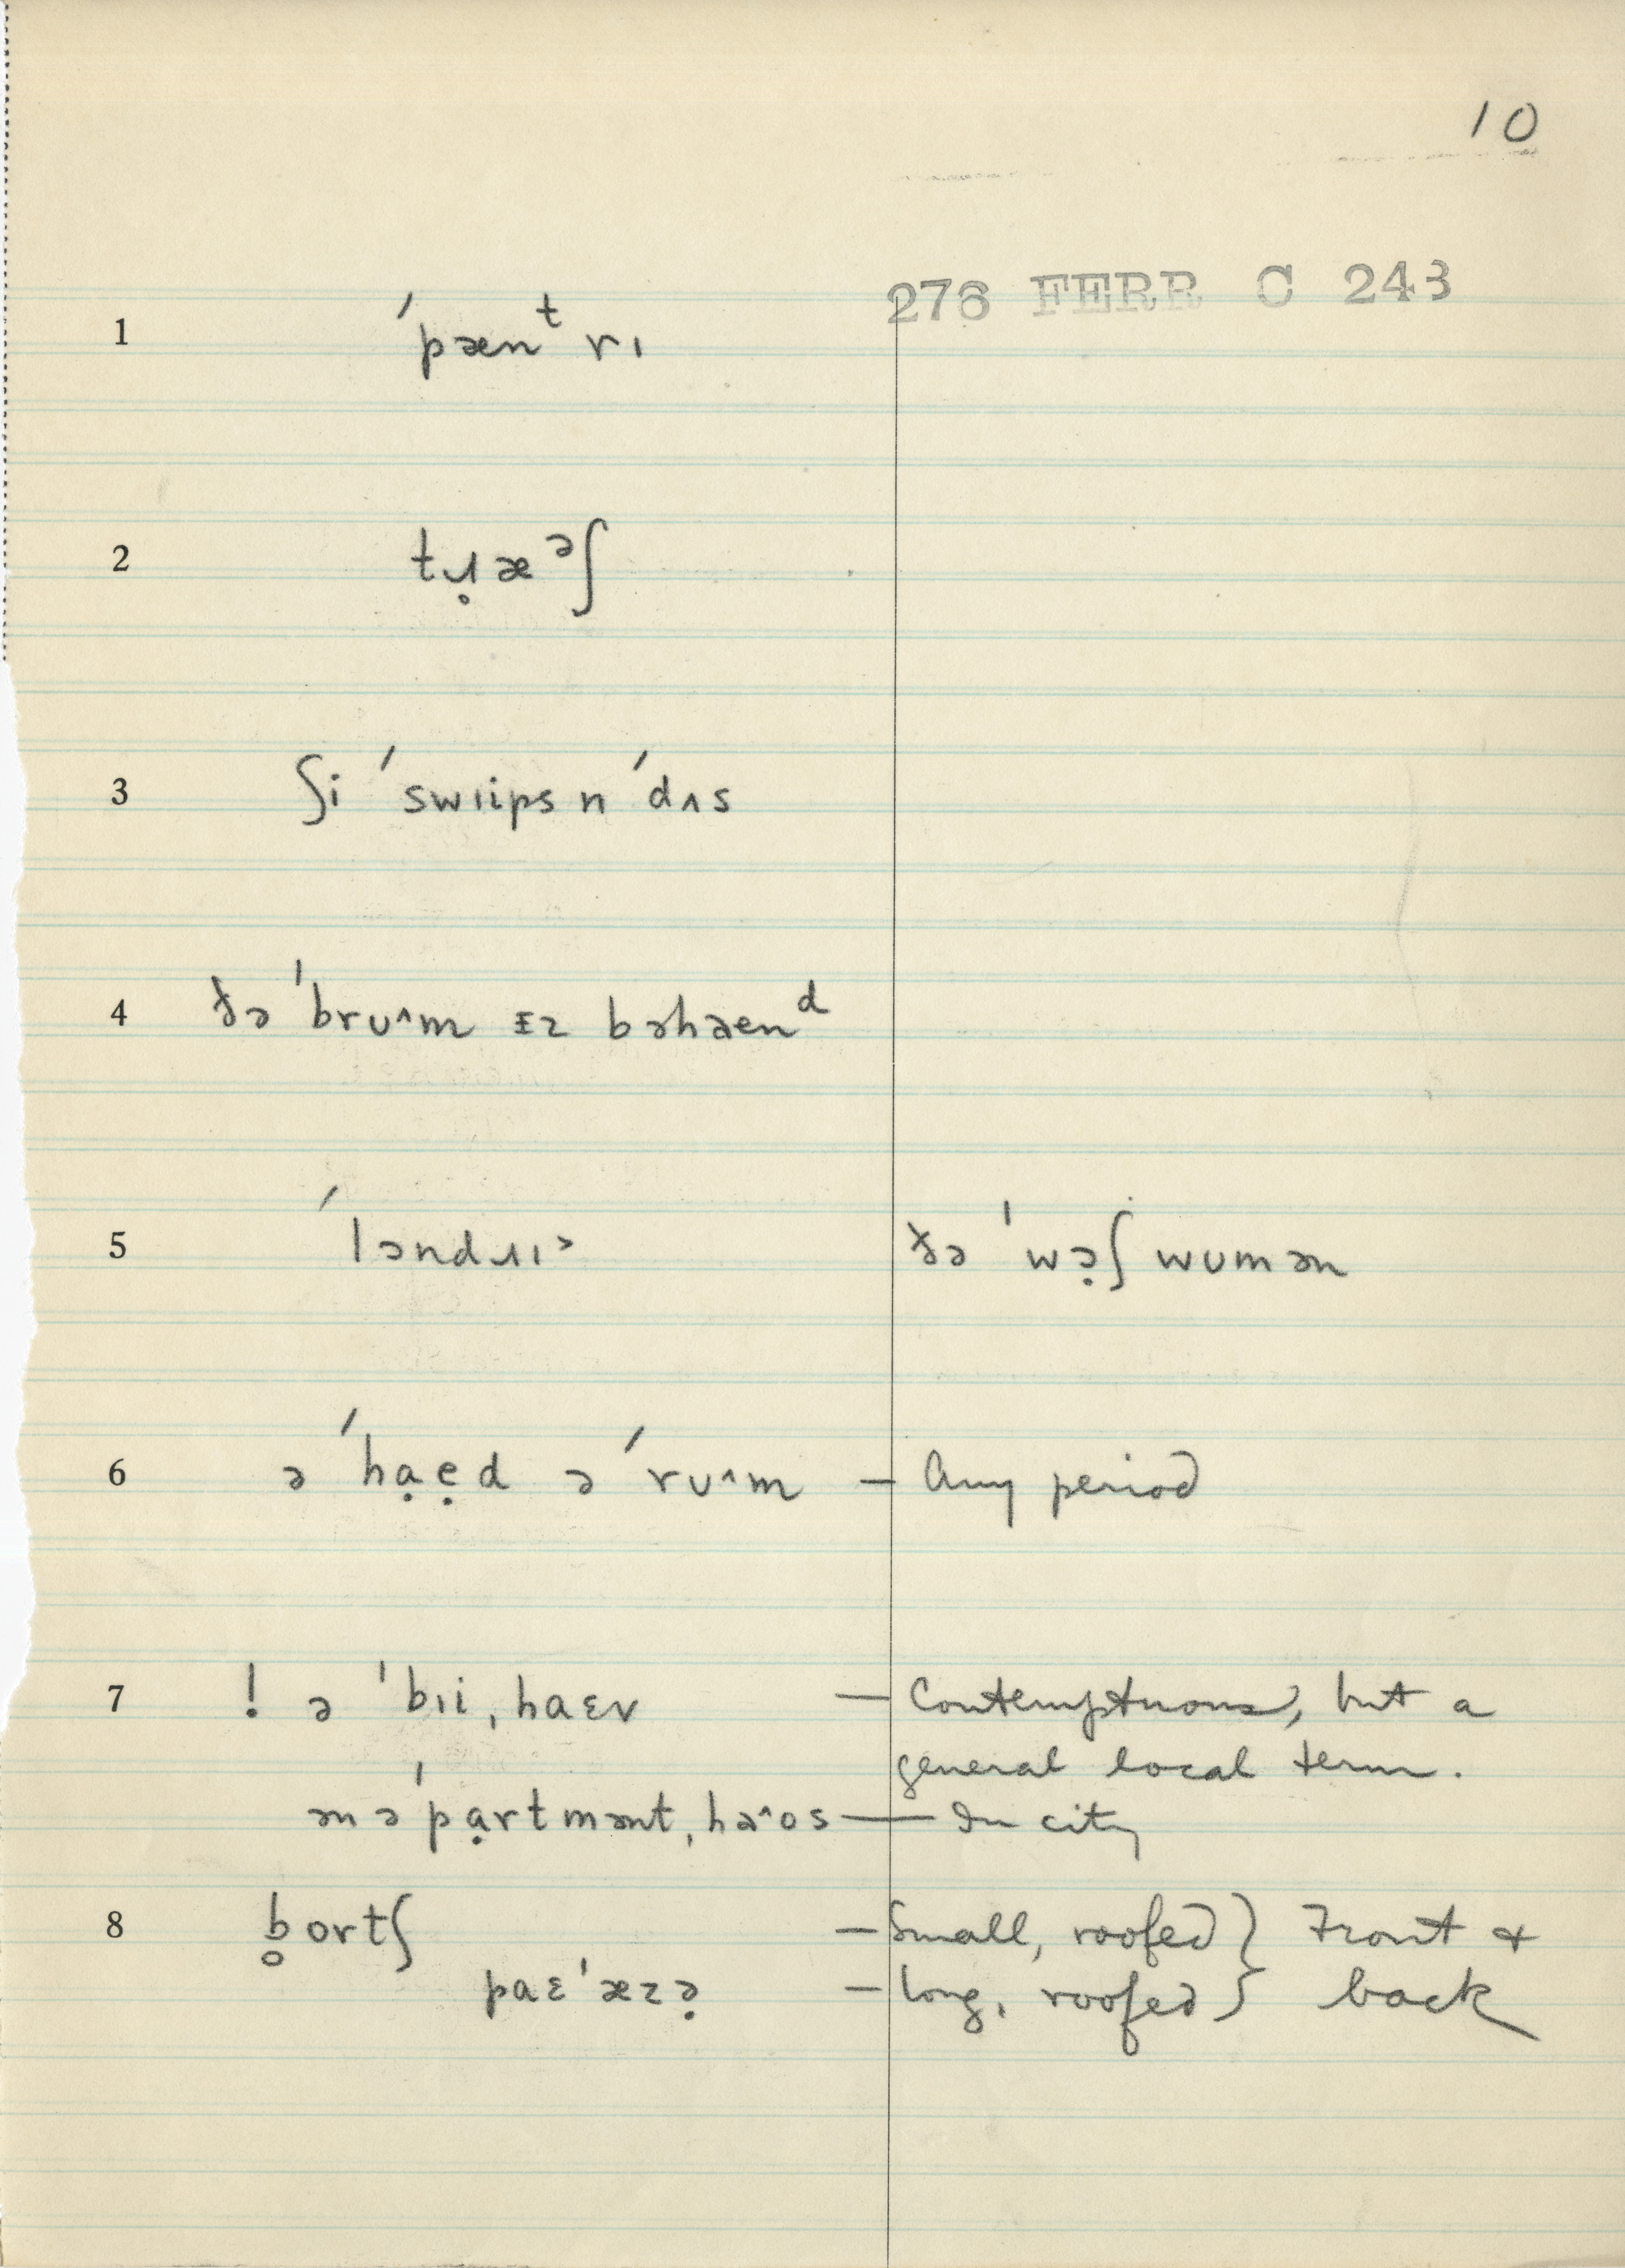 10
276 FERR C 243
1 ˈpænᵗrɪ
2 tɹ̥æᵊʃ
3 ʃi ˈswɪips n ˈdʌs
4 ðə ˈbrʊ^m ɪz bəhaenᵈ
5 ˈləndɹɪ˃ ðə ˈwə̣ʃ wʊmən
6 ə ˈhạẹd ə ˈrʊ^m — Any period
7 ! ə ˈbɪiˌhaɛv — Contemptuous, but a
general local term.
ən əˈpạrtməntˌha^os — In city
8 b̥ortʃ — Small, roofed } Front &
paɛˈæzə̣ — long, roofed } back